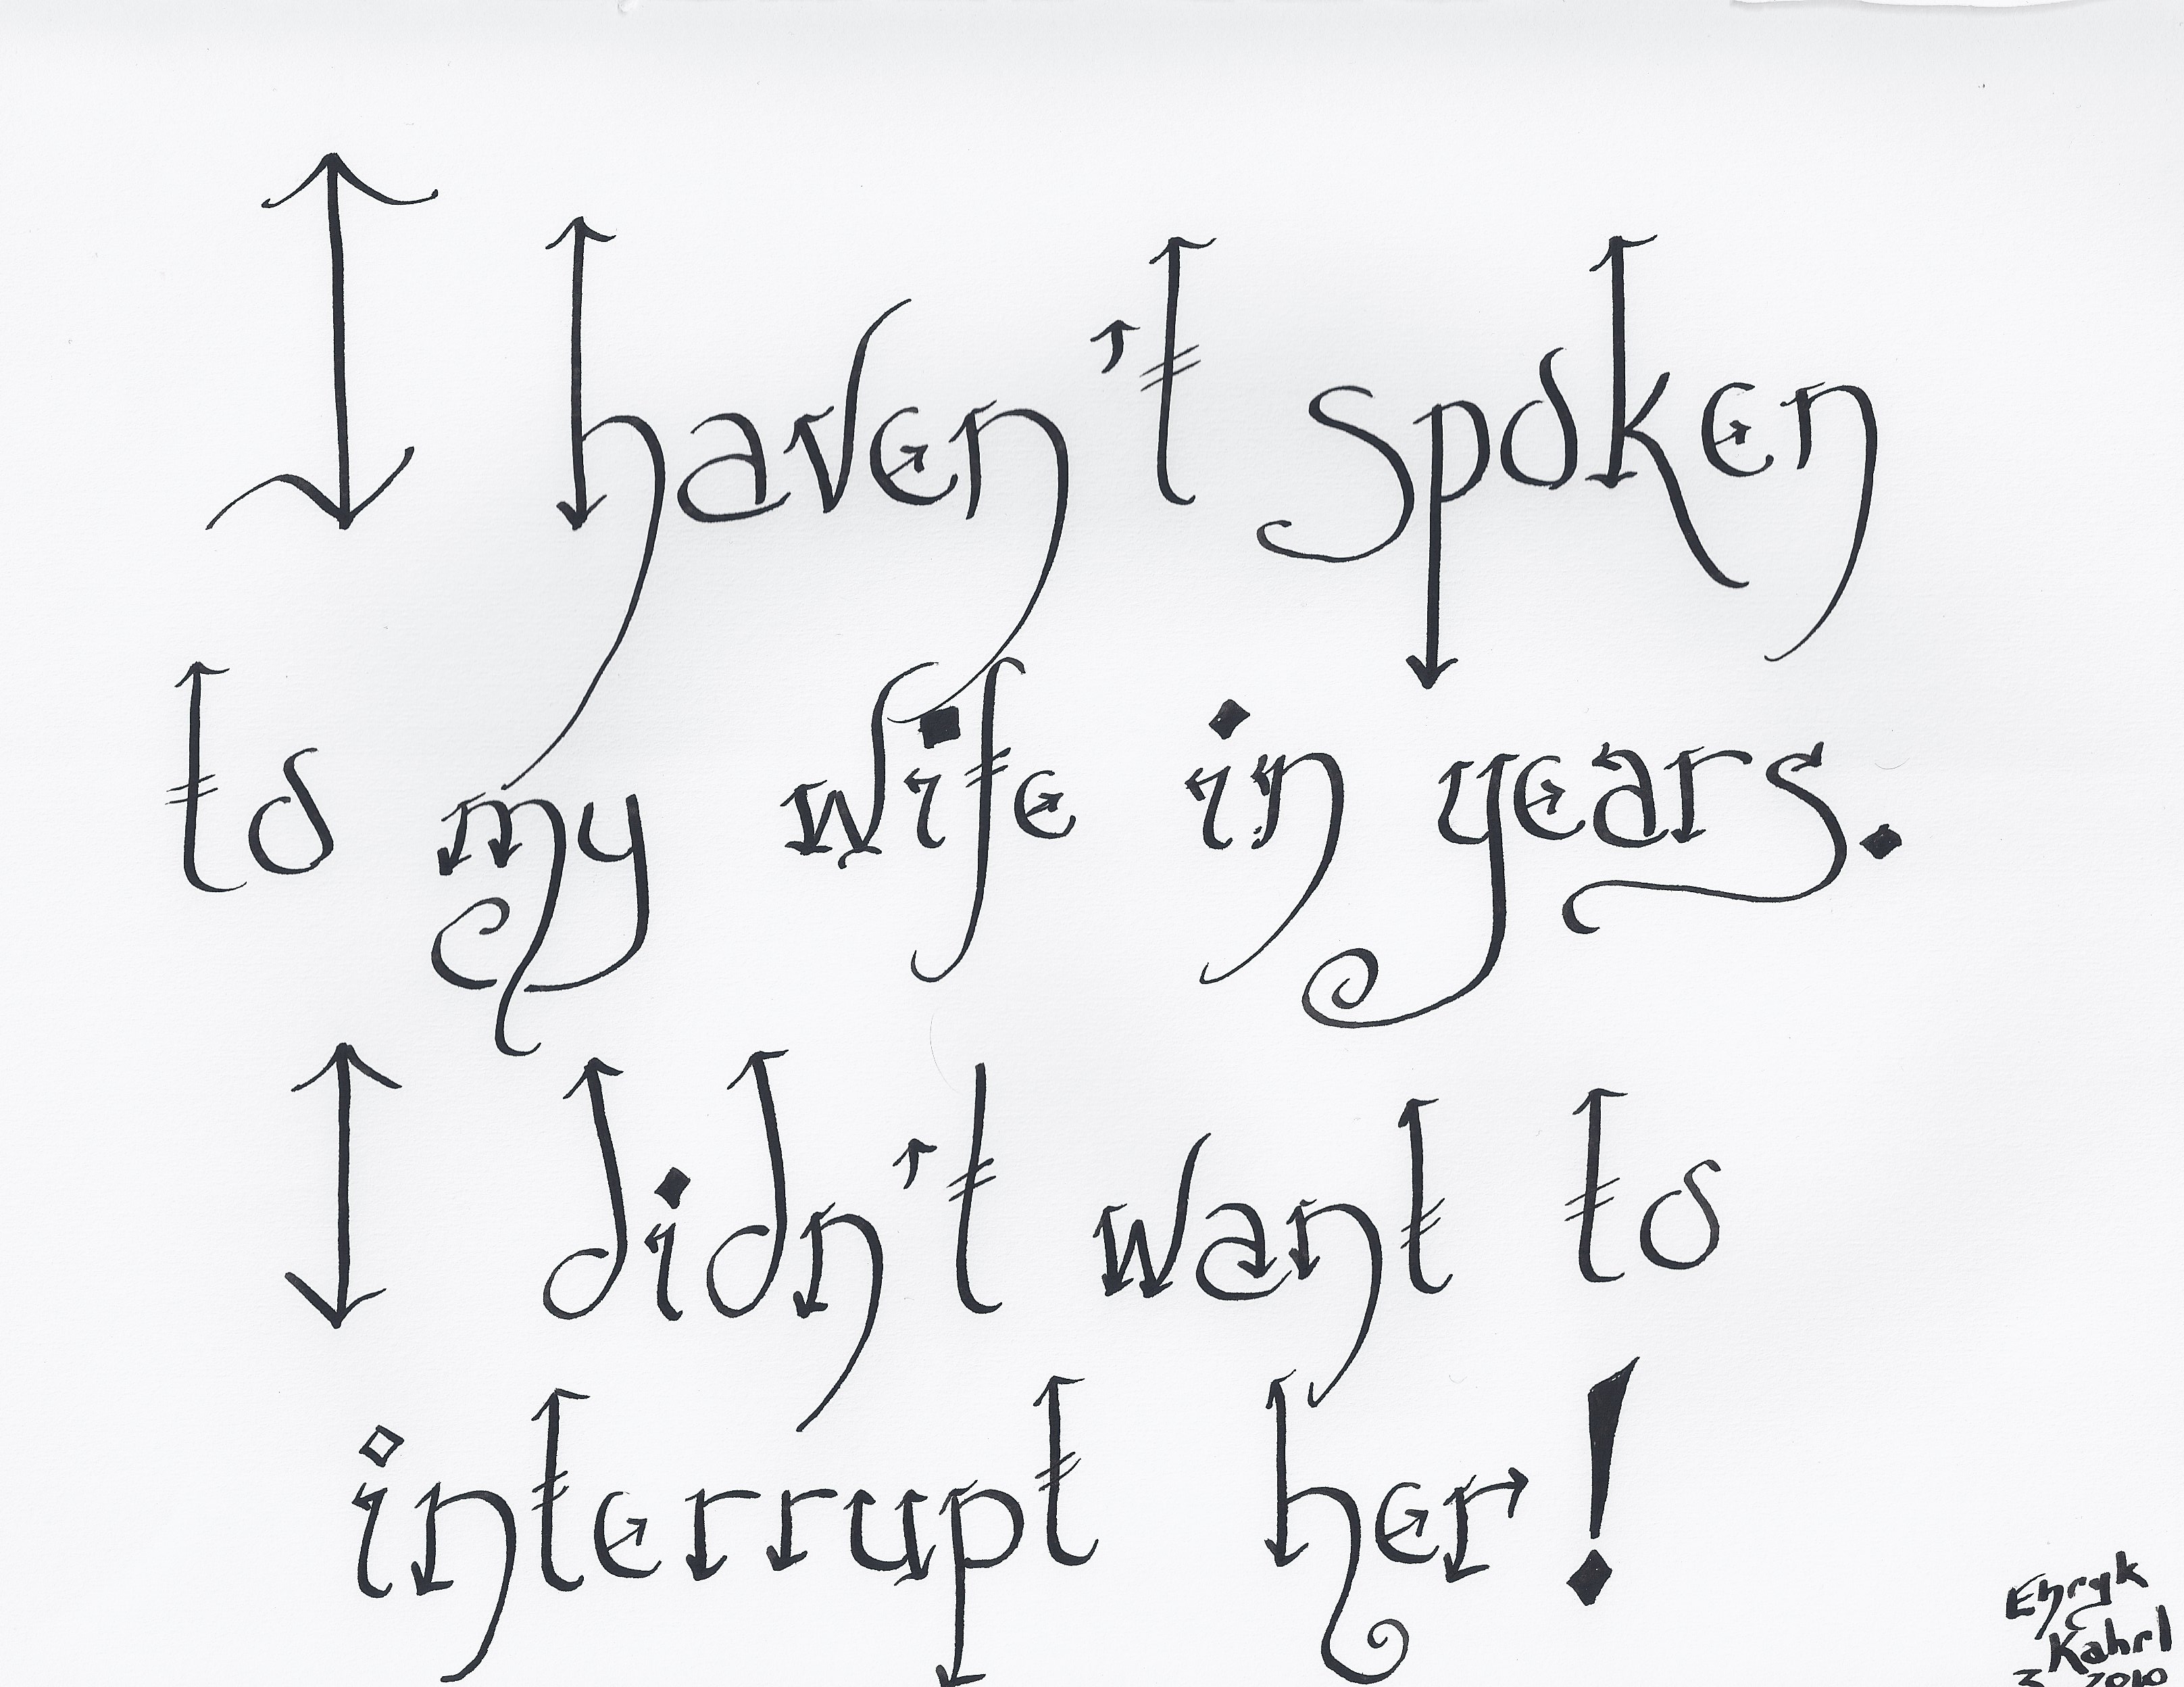 I haven't spoken
to my wife in years.
I didn't want to
interrupt her!
Enryk
Kahrl
3 2010